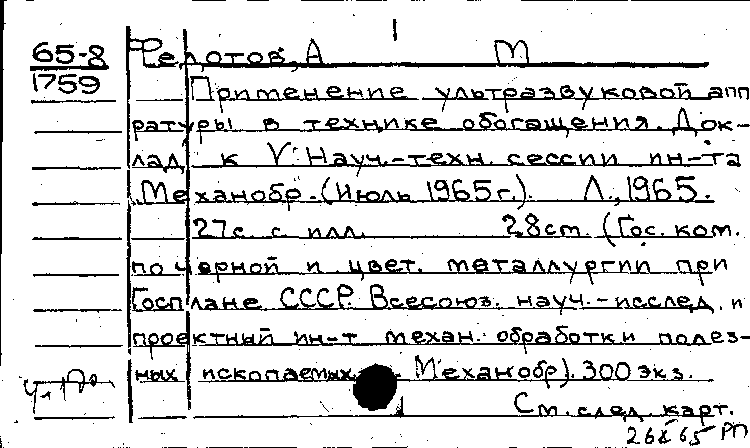 1
65-8 Федотов, А М
1759 Применение ультразвуковой апп
ратуры в технике обогащения. Док-
лад к V Науч.-техн. сессии ин-та
Механобр. (Июль 1965 г.). Л., 1965.
27 с. с илл. 28 см. (Гос. ком.
по черной и цвет. металлургии при
Госплане СССР. Всесоюз. науч.-исслед. и
проектный ин-т механ. обработки полез-
ных ископаемых Механобр). 300 экз.
См. след. карт.
26 X 65 РП